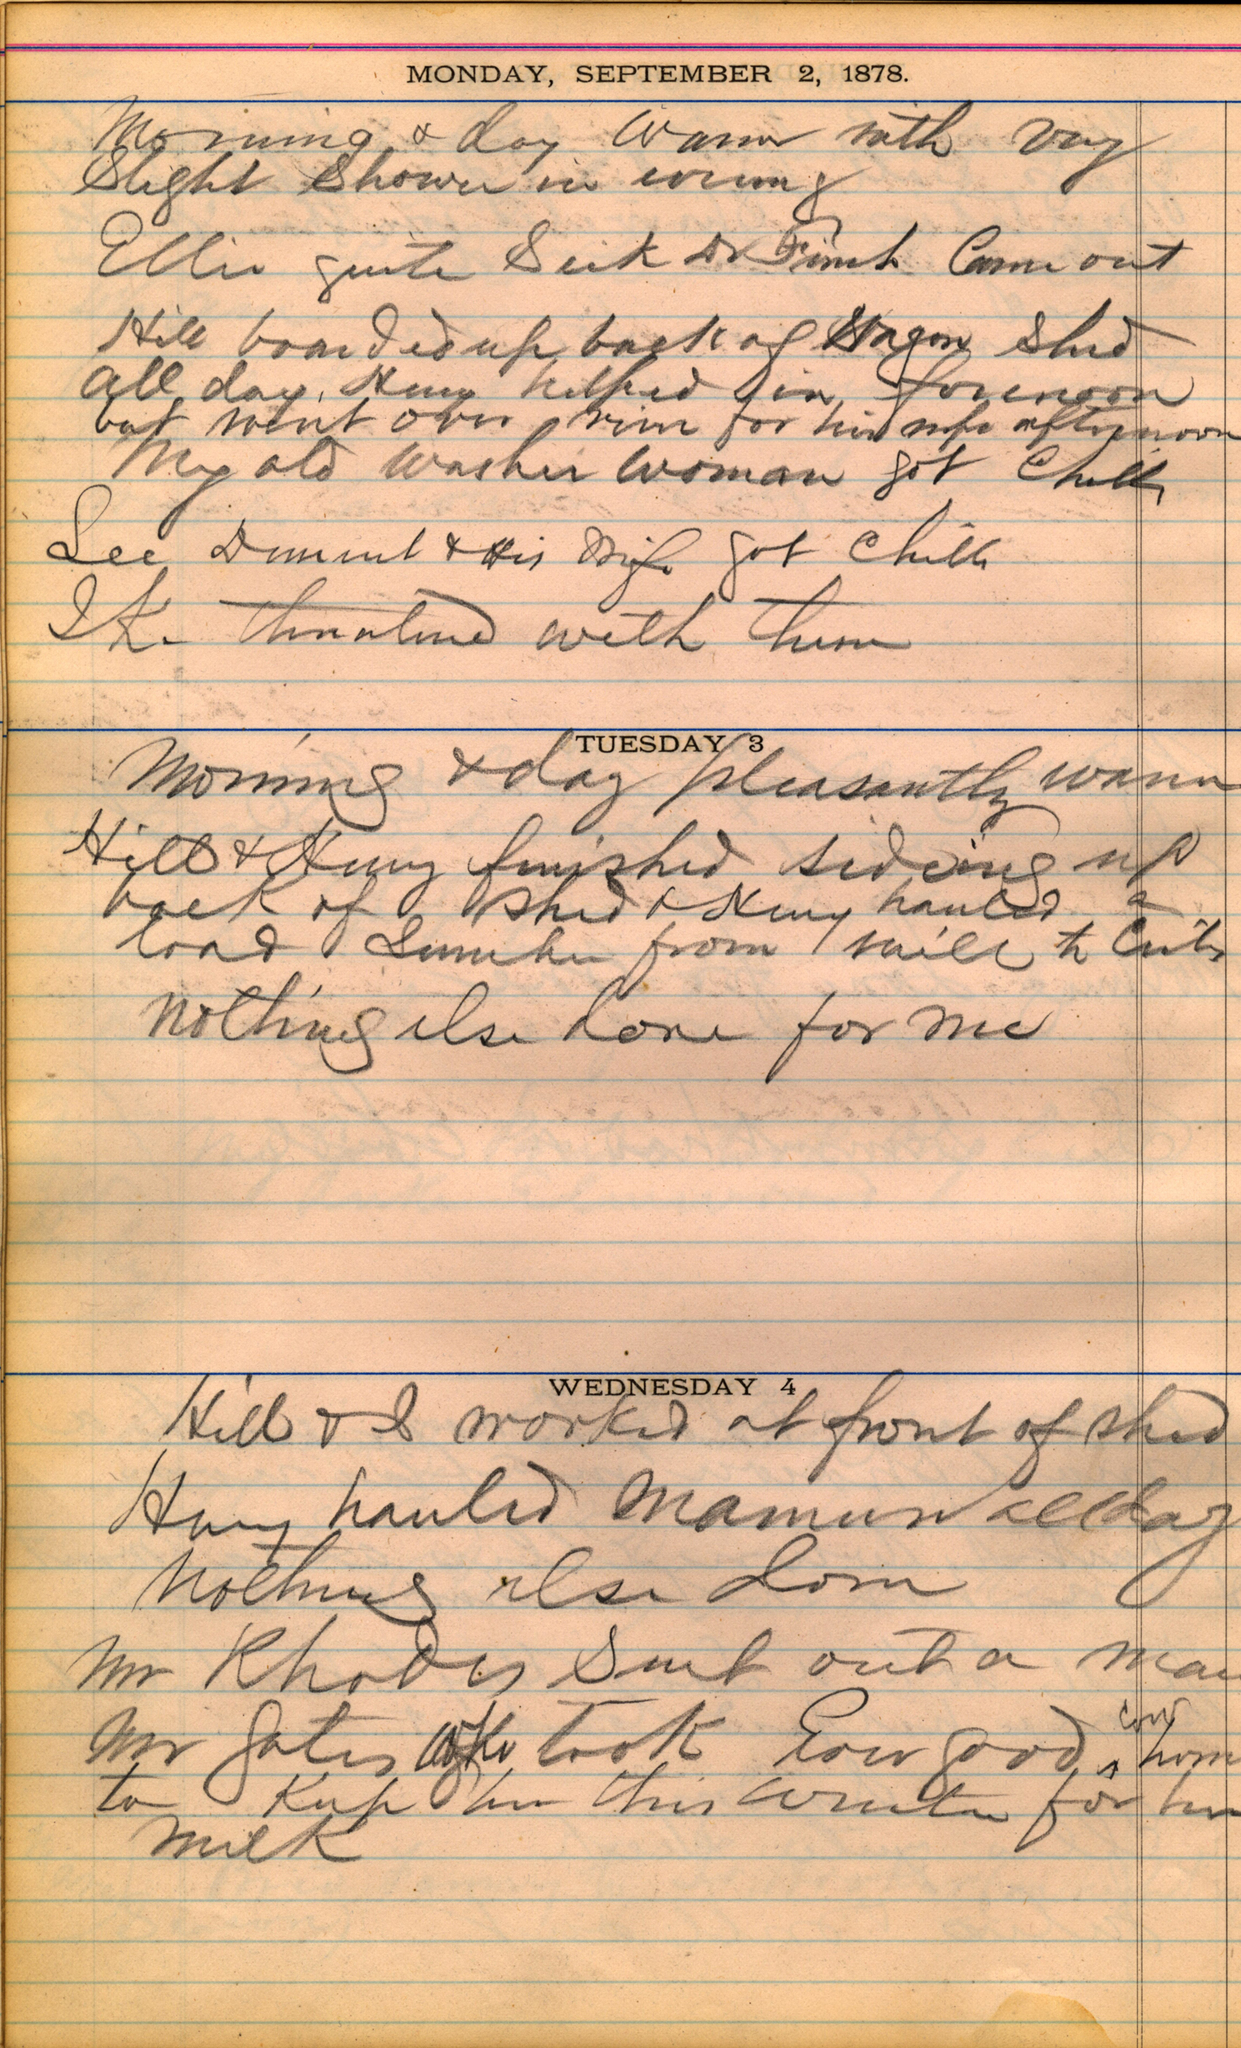 MONDAY, SEPTEMBER 2, 1878.
Morning & day Warm with very
Slight Shower in evening
Ellie quite Sick Dr Finch Came out
Hill boarded up back of Wagon Shed
all day. Henry helped in forenoon
but went over river for his wife afternoon
My old Washer Woman got Chills
Lee Dumont & His Wife got Chills
Ike threatened with them
TUESDAY 3
Morning & day pleasantly warm
Hill & Henry finished sideing up
back of shed & Henry hauled a
load Lumber from mill to
Nothing else done for me
WEDNESDAY 4
Hill & I worked at front of shed
Henry hauled Manure all day
Nothing else done
Mr Rhodes Sent out a man
Mr Gates who took Eow good cow home
to Keep her this Winter for her
Milk